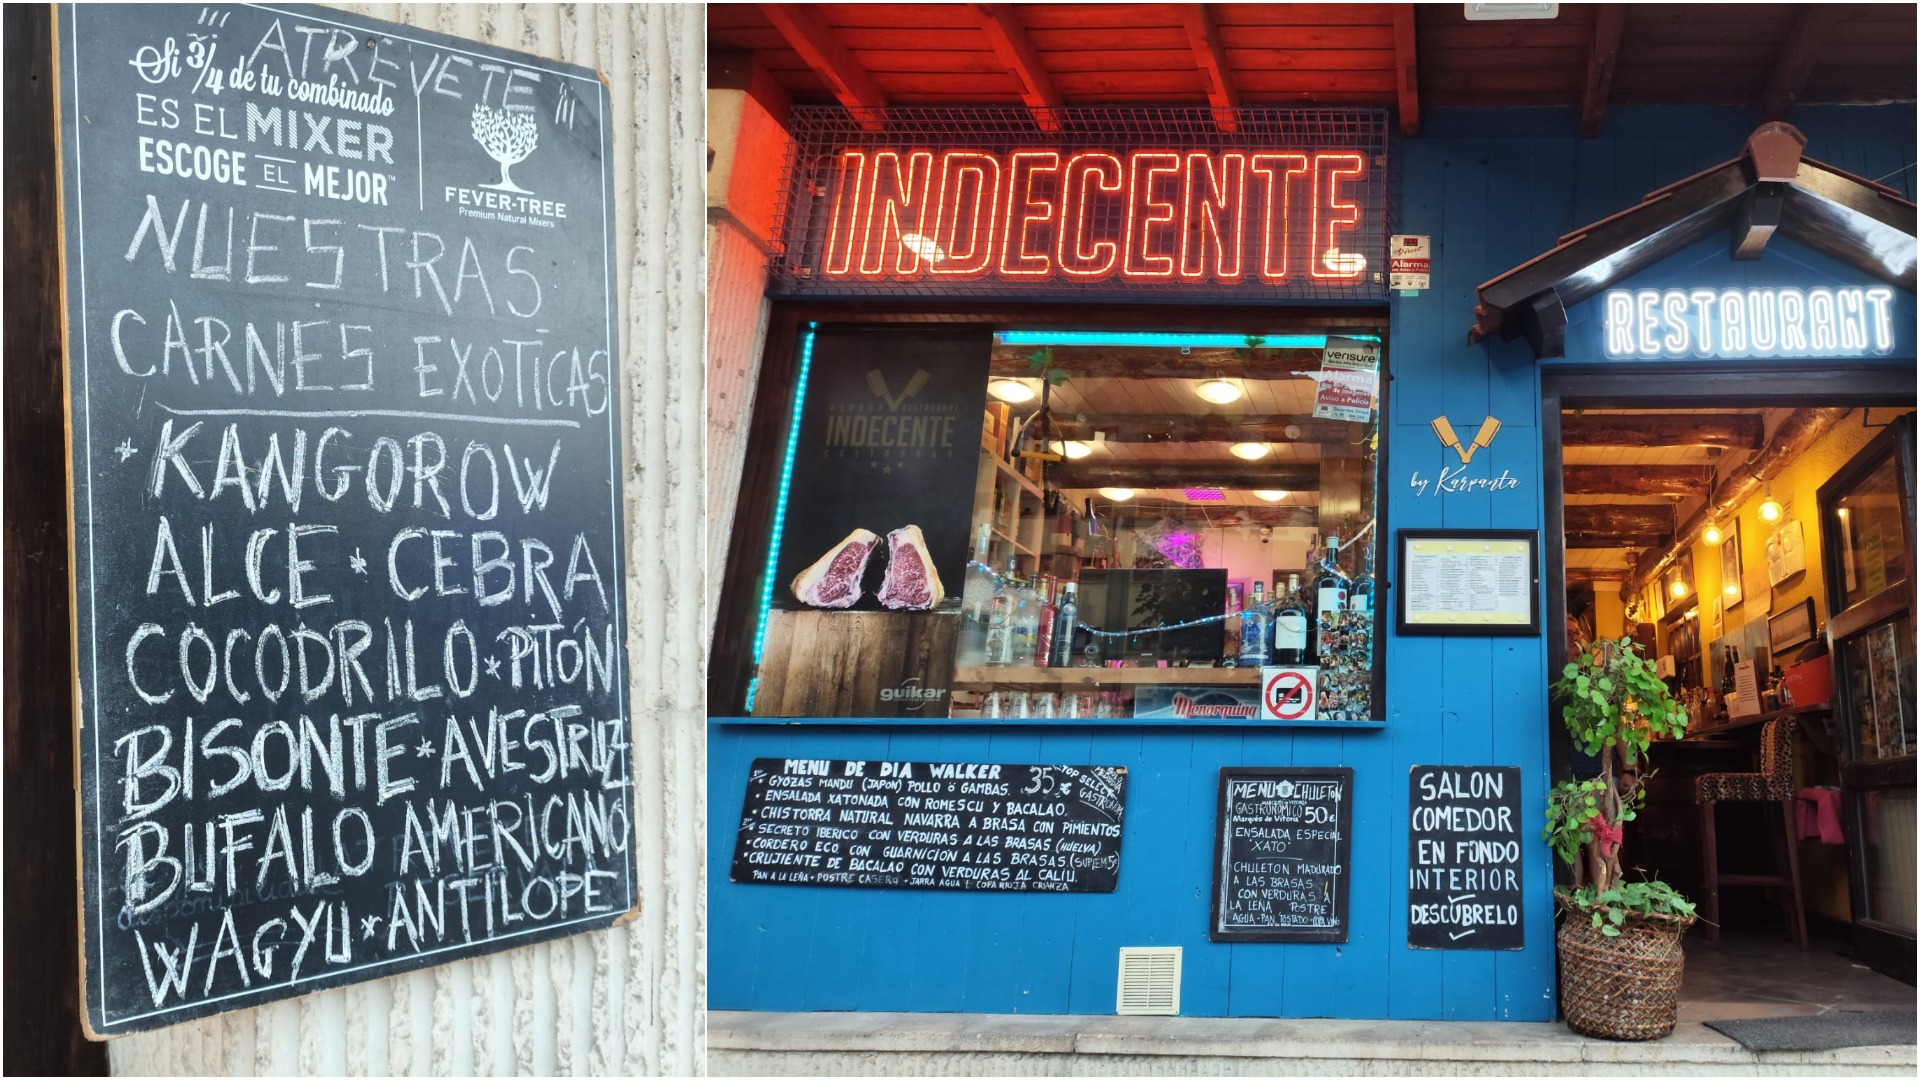 ¡¡¡ ATREVETE !!!
Si 3/4 de tu combinado
ES EL MIXER
ESCOGE EL MEJOR™
FEVER-TREE
Premium Natural Mixers
NUESTRAS
CARNES EXOTICAS
* KANGOROW
ALCE * CEBRA
COCODRILO * PITÓN
BISONTE * AVESTRUZ
BUFALO AMERICANO
WAGYU * ANTILOPE
INDECENTE
RESTAURANT
Direct
Alarma
verisure
Alarma
Aviso a Policía
RESTAURANT
INDECENTE
GASTROBAR
by Karpanta
guikar
Menorquina
MENU DE DIA WALKER 35 €
TOP SELECT
GASTRONOMIA
• GYOZAS MANDU (JAPON) POLLO O GAMBAS.
• ENSALADA XATONADA CON ROMESCU Y BACALAO.
• CHISTORRA NATURAL NAVARRA A BRASA CON PIMIENTOS
• SECRETO IBERICO CON VERDURAS A LAS BRASAS (HUELVA)
• CORDERO ECO CON GUARNICIÓN A LAS BRASAS. (SUPLEM 5€)
• CRUJIENTE DE BACALAO CON VERDURAS AL CALIU.
PAN A LA LEÑA • POSTRE CASERO • JARRA AGUA C COPA RIOJA CRIANZA
MENU CHULETON
GASTRONOMICO 50€
Marqués de Vitoria
ENSALADA ESPECIAL
"XATO"
CHULETON MADURADO
A LAS BRASAS
CON VERDURAS A
LA LEÑA POSTRE
AGUA - PAN TOSTADO - COPA VINO
SALON
COMEDOR
EN FONDO
INTERIOR
DESCÚBRELO